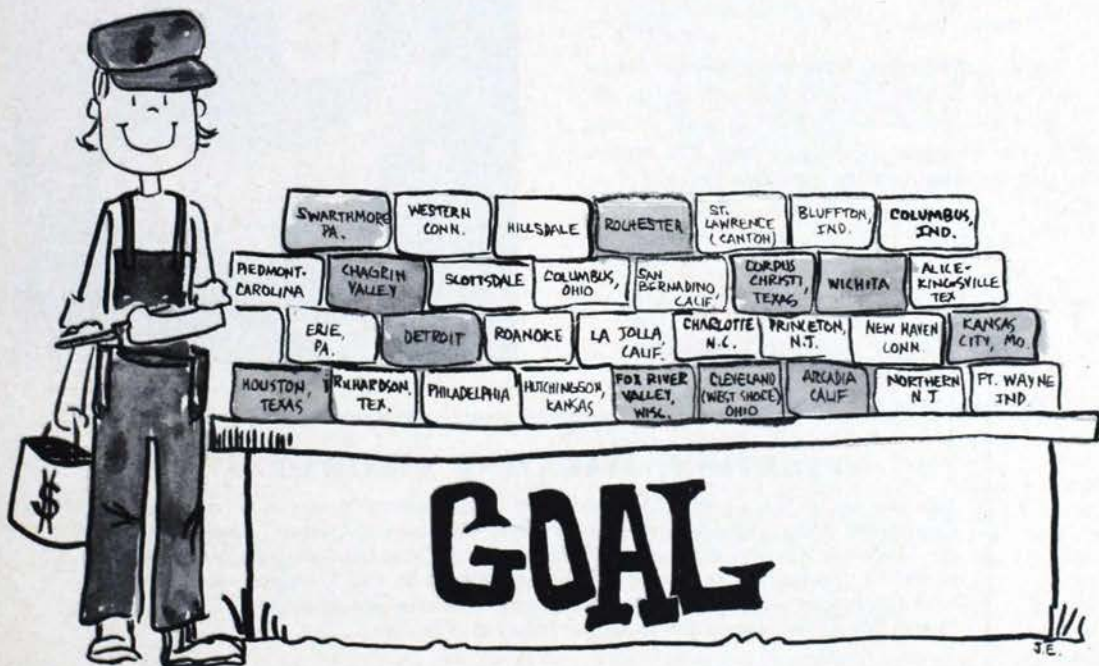 SWARTHMORE
PA.
WESTERN
CONN.
HILLSDALE
ROCHESTER
ST.
LAWRENCE
(CANTON)
BLUFFTON,
IND.
COLUMBUS,
IND.
PIEDMONT-
CAROLINA
CHAGRIN
VALLEY
SCOTTSDALE
COLUMBUS,
OHIO
SAN
BERNADINO,
CALIF.
CORPUS
CHRISTI,
TEXAS
WICHITA
ALICE-
KINGSVILLE
TEX
ERIE,
PA.
DETROIT
ROANOKE
LA JOLLA,
CALIF.
CHARLOTTE
N.C.
PRINCETON,
N.J.
NEW HAVEN
CONN.
KANSAS
CITY, MO.
HOUSTON,
TEXAS
RICHARDSON,
TEX.
PHILADELPHIA
HUTCHINGSON,
KANSAS
FOX RIVER
VALLEY,
WISC.
CLEVELAND
(WEST SHOCE)
OHIO
ARCADIA
CALIF
NORTHERN
N.J
FT. WAYNE
IND.
$
GOAL
J.E.